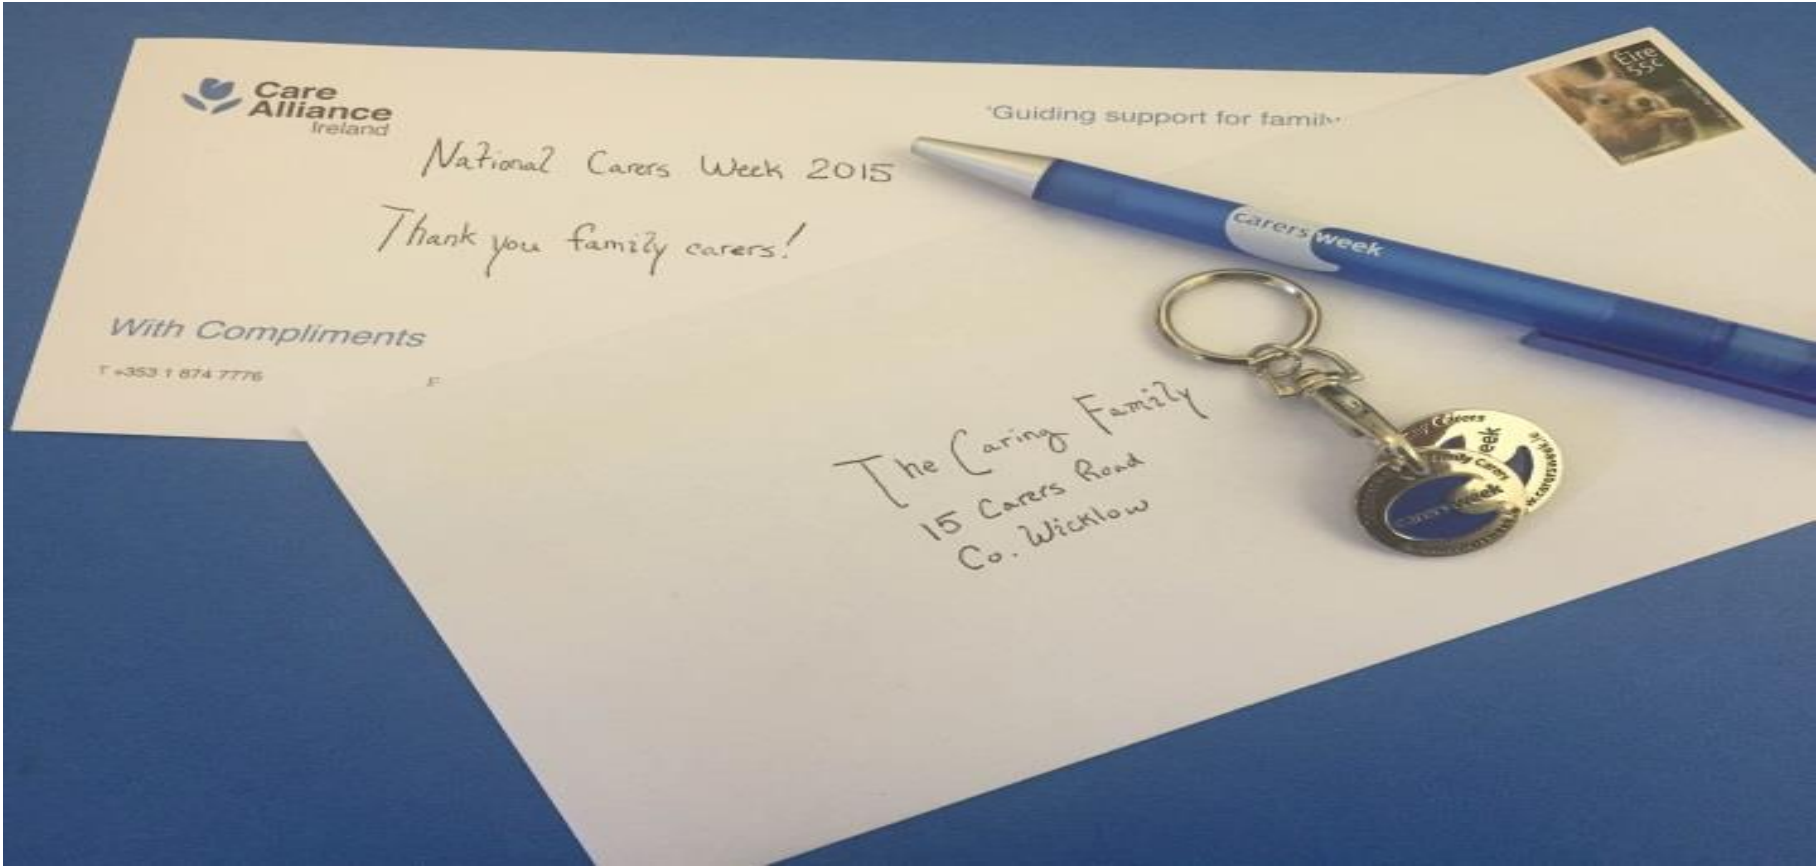 Care
Alliance
Ireland
'Guiding support for family
National Carers Week 2015
Thank you family carers!
With Compliments
T +353 1 874 7776
F
Éire
55c
carers week
The Caring Family
15 Carers Road
Co. Wicklow
eek
Family Carers
carers week